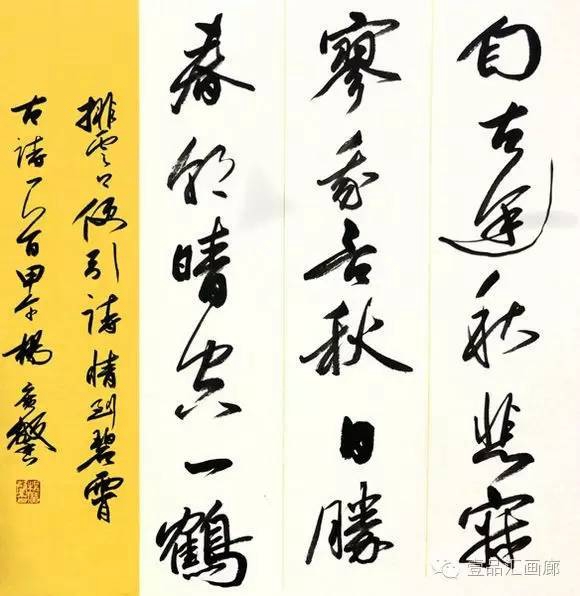 自古逢秋悲寂
寥我言秋日勝
春朝晴空一鶴
排雲上便引詩情到碧霄
古詩一首甲午楊廣馨
壹品汇画廊